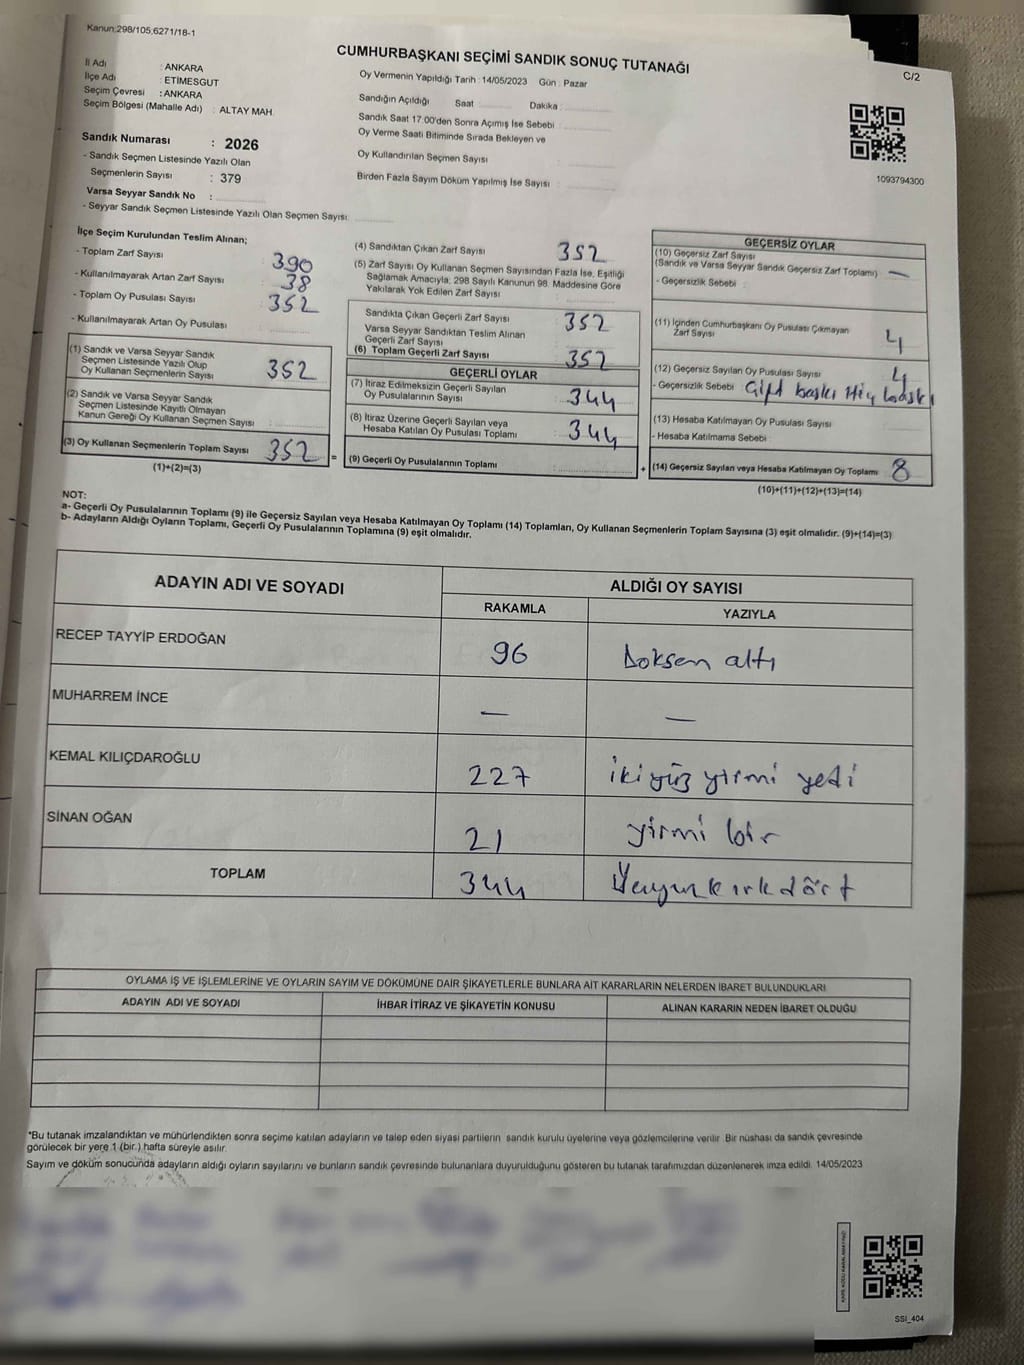 Kanun:298/105,6271/18-1
CUMHURBAŞKANI SEÇİMİ SANDIK SONUÇ TUTANAĞI
C/2
İl Adı : ANKARA
İlçe Adı : ETİMESGUT
Seçim Çevresi : ANKARA
Seçim Bölgesi (Mahalle Adı) : ALTAY MAH.
Sandık Numarası : 2026
- Sandık Seçmen Listesinde Yazılı Olan
Seçmenlerin Sayısı : 379
Varsa Seyyar Sandık No :
- Seyyar Sandık Seçmen Listesinde Yazılı Olan Seçmen Sayısı:
Oy Vermenin Yapıldığı Tarih : 14/05/2023 Gün : Pazar
Sandığın Açıldığı Saat : Dakika :
Sandık Saat 17:00'den Sonra Açımış İse Sebebi :
Oy Verme Saati Bitiminde Sırada Bekleyen ve
Oy Kullandırılan Seçmen Sayısı :
Birden Fazla Sayım Döküm Yapılmış İse Sayısı :
1093794300
İlçe Seçim Kurulundan Teslim Alınan;
- Toplam Zarf Sayısı : 390
- Kullanılmayarak Artan Zarf Sayısı : 38
- Toplam Oy Pusulası Sayısı : 352
- Kullanılmayarak Artan Oy Pusulası :
(1) Sandık ve Varsa Seyyar Sandık
Seçmen Listesinde Yazılı Olup
Oy Kullanan Seçmenlerin Sayısı : 352
(2) Sandık ve Varsa Seyyar Sandık
Seçmen Listesinde Kayıtlı Olmayan
Kanun Gereği Oy Kullanan Seçmen Sayısı :
(3) Oy Kullanan Seçmenlerin Toplam Sayısı : 352
(1)+(2)=(3)
(4) Sandıktan Çıkan Zarf Sayısı : 352
(5) Zarf Sayısı Oy Kullanan Seçmen Sayısından Fazla İse, Eşitliği
Sağlamak Amacıyla, 298 Sayılı Kanunun 98. Maddesine Göre
Yakılarak Yok Edilen Zarf Sayısı :
Sandıkta Çıkan Geçerli Zarf Sayısı : 352
Varsa Seyyar Sandıktan Teslim Alınan
Geçerli Zarf Sayısı :
(6) Toplam Geçerli Zarf Sayısı : 352
GEÇERLİ OYLAR
(7) İtiraz Edilmeksizin Geçerli Sayılan
Oy Pusulalarının Sayısı : 344
(8) İtiraz Üzerine Geçerli Sayılan veya
Hesaba Katılan Oy Pusulası Toplamı : 344
= (9) Geçerli Oy Pusulalarının Toplamı :
GEÇERSİZ OYLAR
(10) Geçersiz Zarf Sayısı
(Sandık ve Varsa Seyyar Sandık Geçersiz Zarf Toplamı) : —
- Geçersizlik Sebebi :
(11) İçinden Cumhurbaşkanı Oy Pusulası Çıkmayan
Zarf Sayısı : 4
(12) Geçersiz Sayılan Oy Pusulası Sayısı : 4
- Geçersizlik Sebebi : Çift baskı Hiç baskı
(13) Hesaba Katılmayan Oy Pusulası Sayısı :
- Hesaba Katılmama Sebebi :
+ (14) Geçersiz Sayılan veya Hesaba Katılmayan Oy Toplamı : 8
(10)+(11)+(12)+(13)=(14)
NOT:
a- Geçerli Oy Pusulalarının Toplamı (9) ile Geçersiz Sayılan veya Hesaba Katılmayan Oy Toplamı (14) Toplamları, Oy Kullanan Seçmenlerin Toplam Sayısına (3) eşit olmalıdır. (9)+(14)=(3)
b- Adayların Aldığı Oyların Toplamı, Geçerli Oy Pusulalarının Toplamına (9) eşit olmalıdır.
ADAYIN ADI VE SOYADI ALDIĞI OY SAYISI
RAKAMLA YAZIYLA
RECEP TAYYİP ERDOĞAN 96 Doksan altı
MUHARREM İNCE — —
KEMAL KILIÇDAROĞLU 227 ikiyüz yirmi yedi
SİNAN OĞAN 21 yirmi bir
TOPLAM 344
OYLAMA İŞ VE İŞLEMLERİNE VE OYLARIN SAYIM VE DÖKÜMÜNE DAİR ŞİKAYETLERLE BUNLARA AİT KARARLARIN NELERDEN İBARET BULUNDUKLARI
ADAYIN ADI VE SOYADI İHBAR İTİRAZ VE ŞİKAYETİN KONUSU ALINAN KARARIN NEDEN İBARET OLDUĞU
*Bu tutanak imzalandıktan ve mühürlendikten sonra seçime katılan adayların ve talep eden siyasi partilerin sandık kurulu üyelerine veya gözlemcilerine verilir. Bir nüshası da sandık çevresinde
görülecek bir yere 1 (bir ) hafta süreyle asılır.
Sayım ve döküm sonucunda adayların aldığı oyların sayılarını ve bunların sandık çevresinde bulunanlara duyurulduğunu gösteren bu tutanak tarafımızdan düzenlenerek imza edildi. 14/05/2023
SSI_404